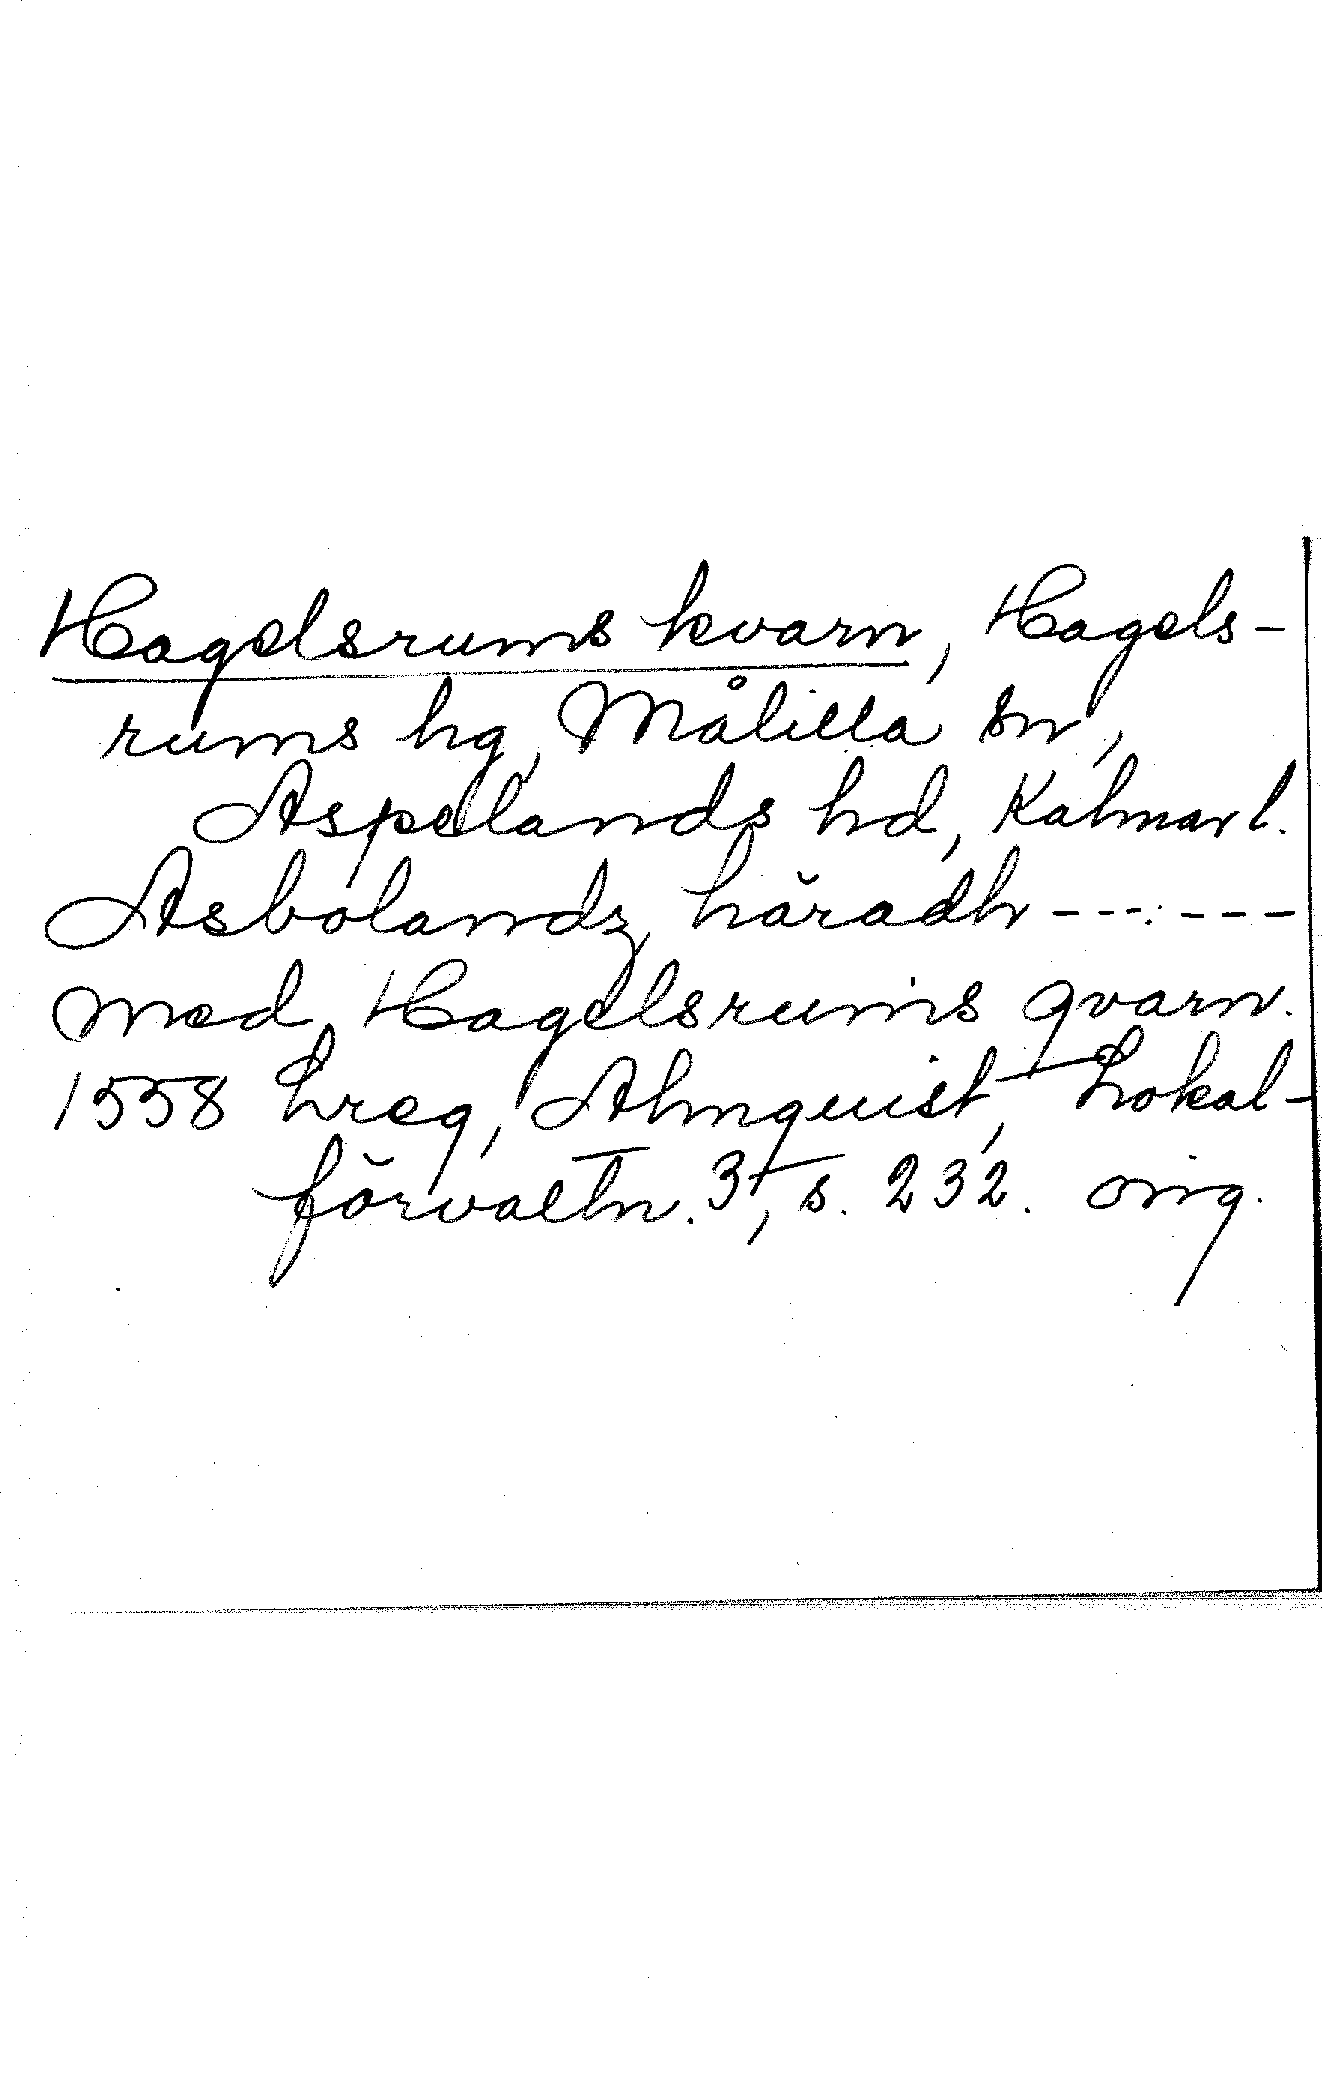 Hagelsrums kvarn, Hagels-
rums hg, Målilla sn,
Aspelands hd, Kalmar l.
Asbolandz häradh - - - - - -
med Hagelsrums qvarn.
1558 Lreg, Almquist, Lokal-
förvaltn. 3, s. 232. orig.